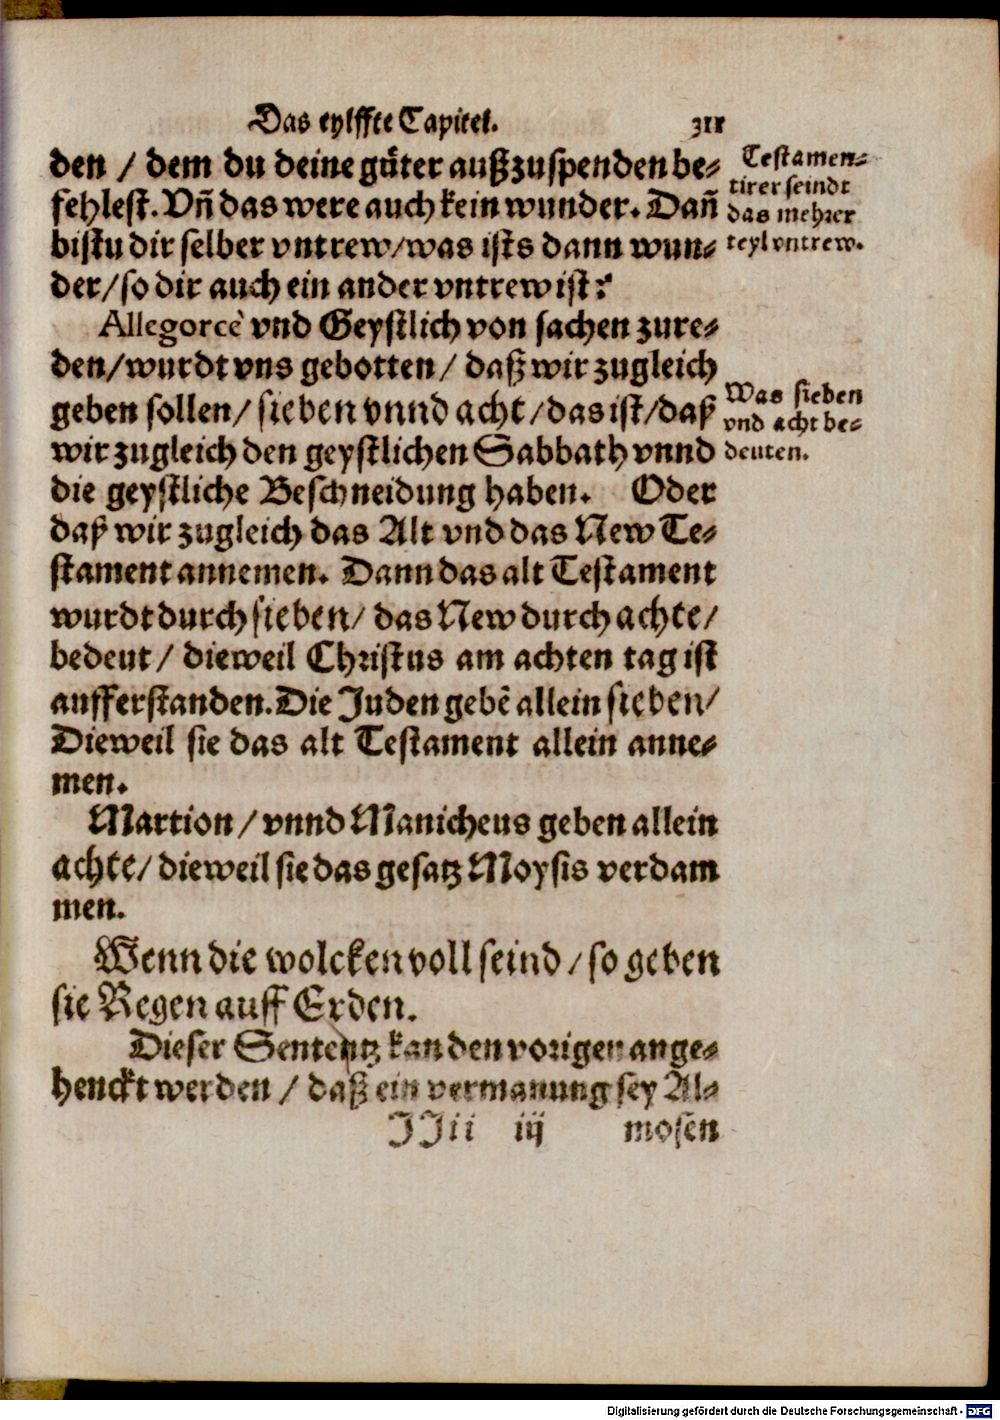 Das eylffte Capitel. 311
den / dem du deine güter außzuspenden be⸗
fehlest. Vñ das were auch kein wunder. Dañ
bistu dir selber vntrew/was ists dann wun⸗
der/so dir auch ein ander vntrew ist?
Testamen⸗
tirer seindt
das mehrer
teyl vntrew.
Allegorcè vnd Geystlich von sachen zure⸗
den/wurdt vns gebotten / daß wir zugleich
geben sollen/ sieben vnnd acht/das ist/daß
wir zugleich den geystlichen Sabbath vnnd
die geystliche Beschneidung haben. Oder
daß wir zugleich das Alt vnd das New Te⸗
stament annemen. Dann das alt Testament
wurdt durch sieben/ das New durch achte/
bedeut / dieweil Christus am achten tag ist
aufferstanden. Die Juden gebẽ allein sieben/
Dieweil sie das alt Testament allein anne⸗
men.
Was sieben
vnd acht be⸗
deuten.
Martion / vnnd Manicheus geben allein
achte/ dieweil sie das gesatz Moysis verdam
men.
Wenn die wolcken voll seind / so geben
sie Regen auff Erden.
Dieser Sententz kan den vorigen ange⸗
henckt werden / daß ein vermanung sey Al⸗
JJii iij mosen
Digitalisierung gefördert durch die Deutsche Forschungsgemeinschaft - DFG